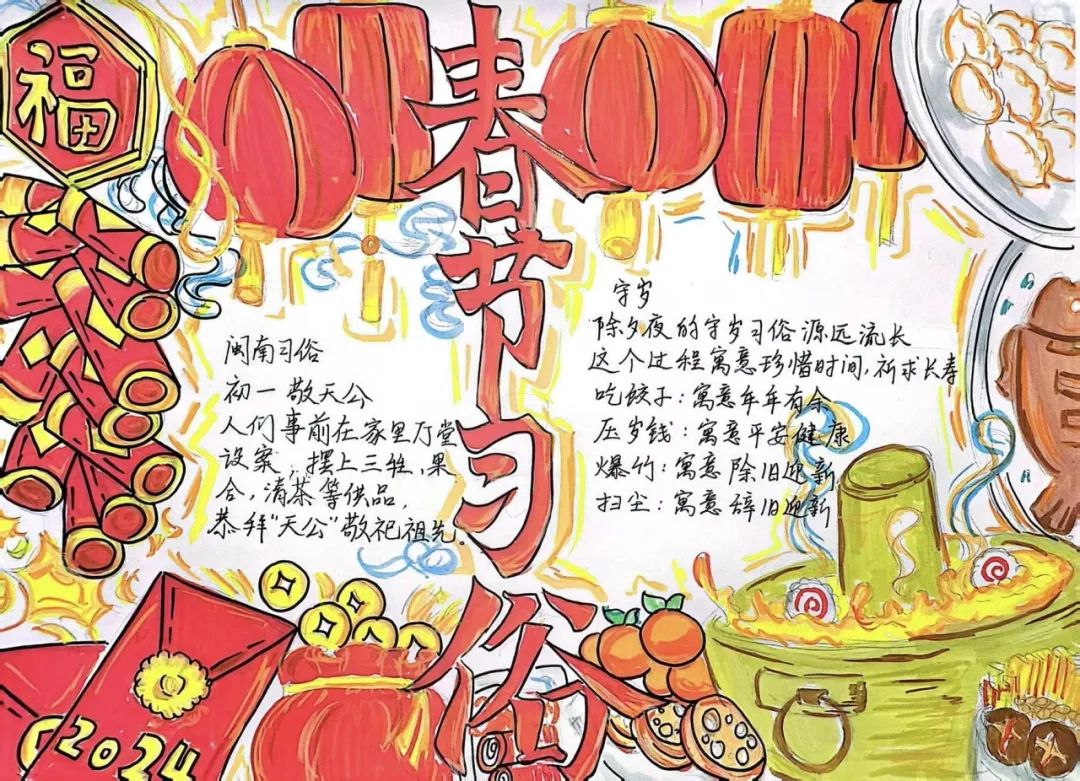 福
春节习俗
闽南习俗
初一 敬天公
人们事前在家里厅堂
设案，摆上三牲，果
合，清茶等供品，
恭拜“天公”敬祀祖先。
守岁
除夕夜的守岁习俗源远流长
这个过程寓意珍惜时间，祈求长寿
吃饺子：寓意年年有余
压岁钱：寓意平安健康
爆竹：寓意除旧迎新
扫尘：寓意辞旧迎新
2024